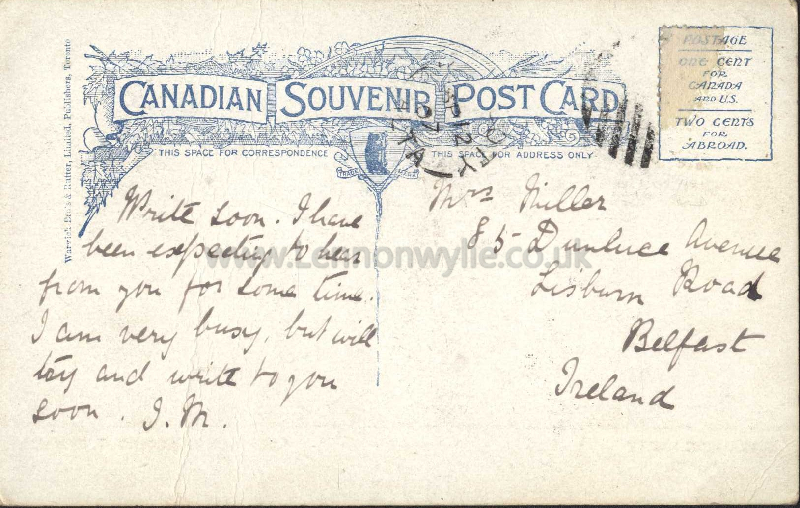 CANADIAN SOUVENIR POST CARD
THIS SPACE FOR CORRESPONDENCE
THIS SPACE FOR ADDRESS ONLY
POSTAGE
ONE CENT
FOR
CANADA
AND U.S.
TWO CENTS
FOR
ABROAD.
Warwick Bro's & Rutter, Limited, Publishers, Toronto
Write soon. I have
been expecting to hear
from you for some time.
I am very busy, but will
try and write to you
soon. I.M.
Mrs Miller
85 Dunluce Avenue
Lisburn Road
Belfast
Ireland
www.Lennonwylie.co.uk